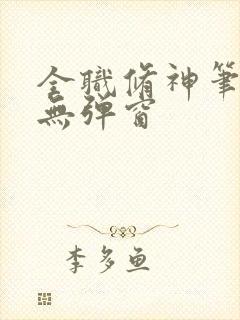 全職脩神筆
無彈窗
李多魚